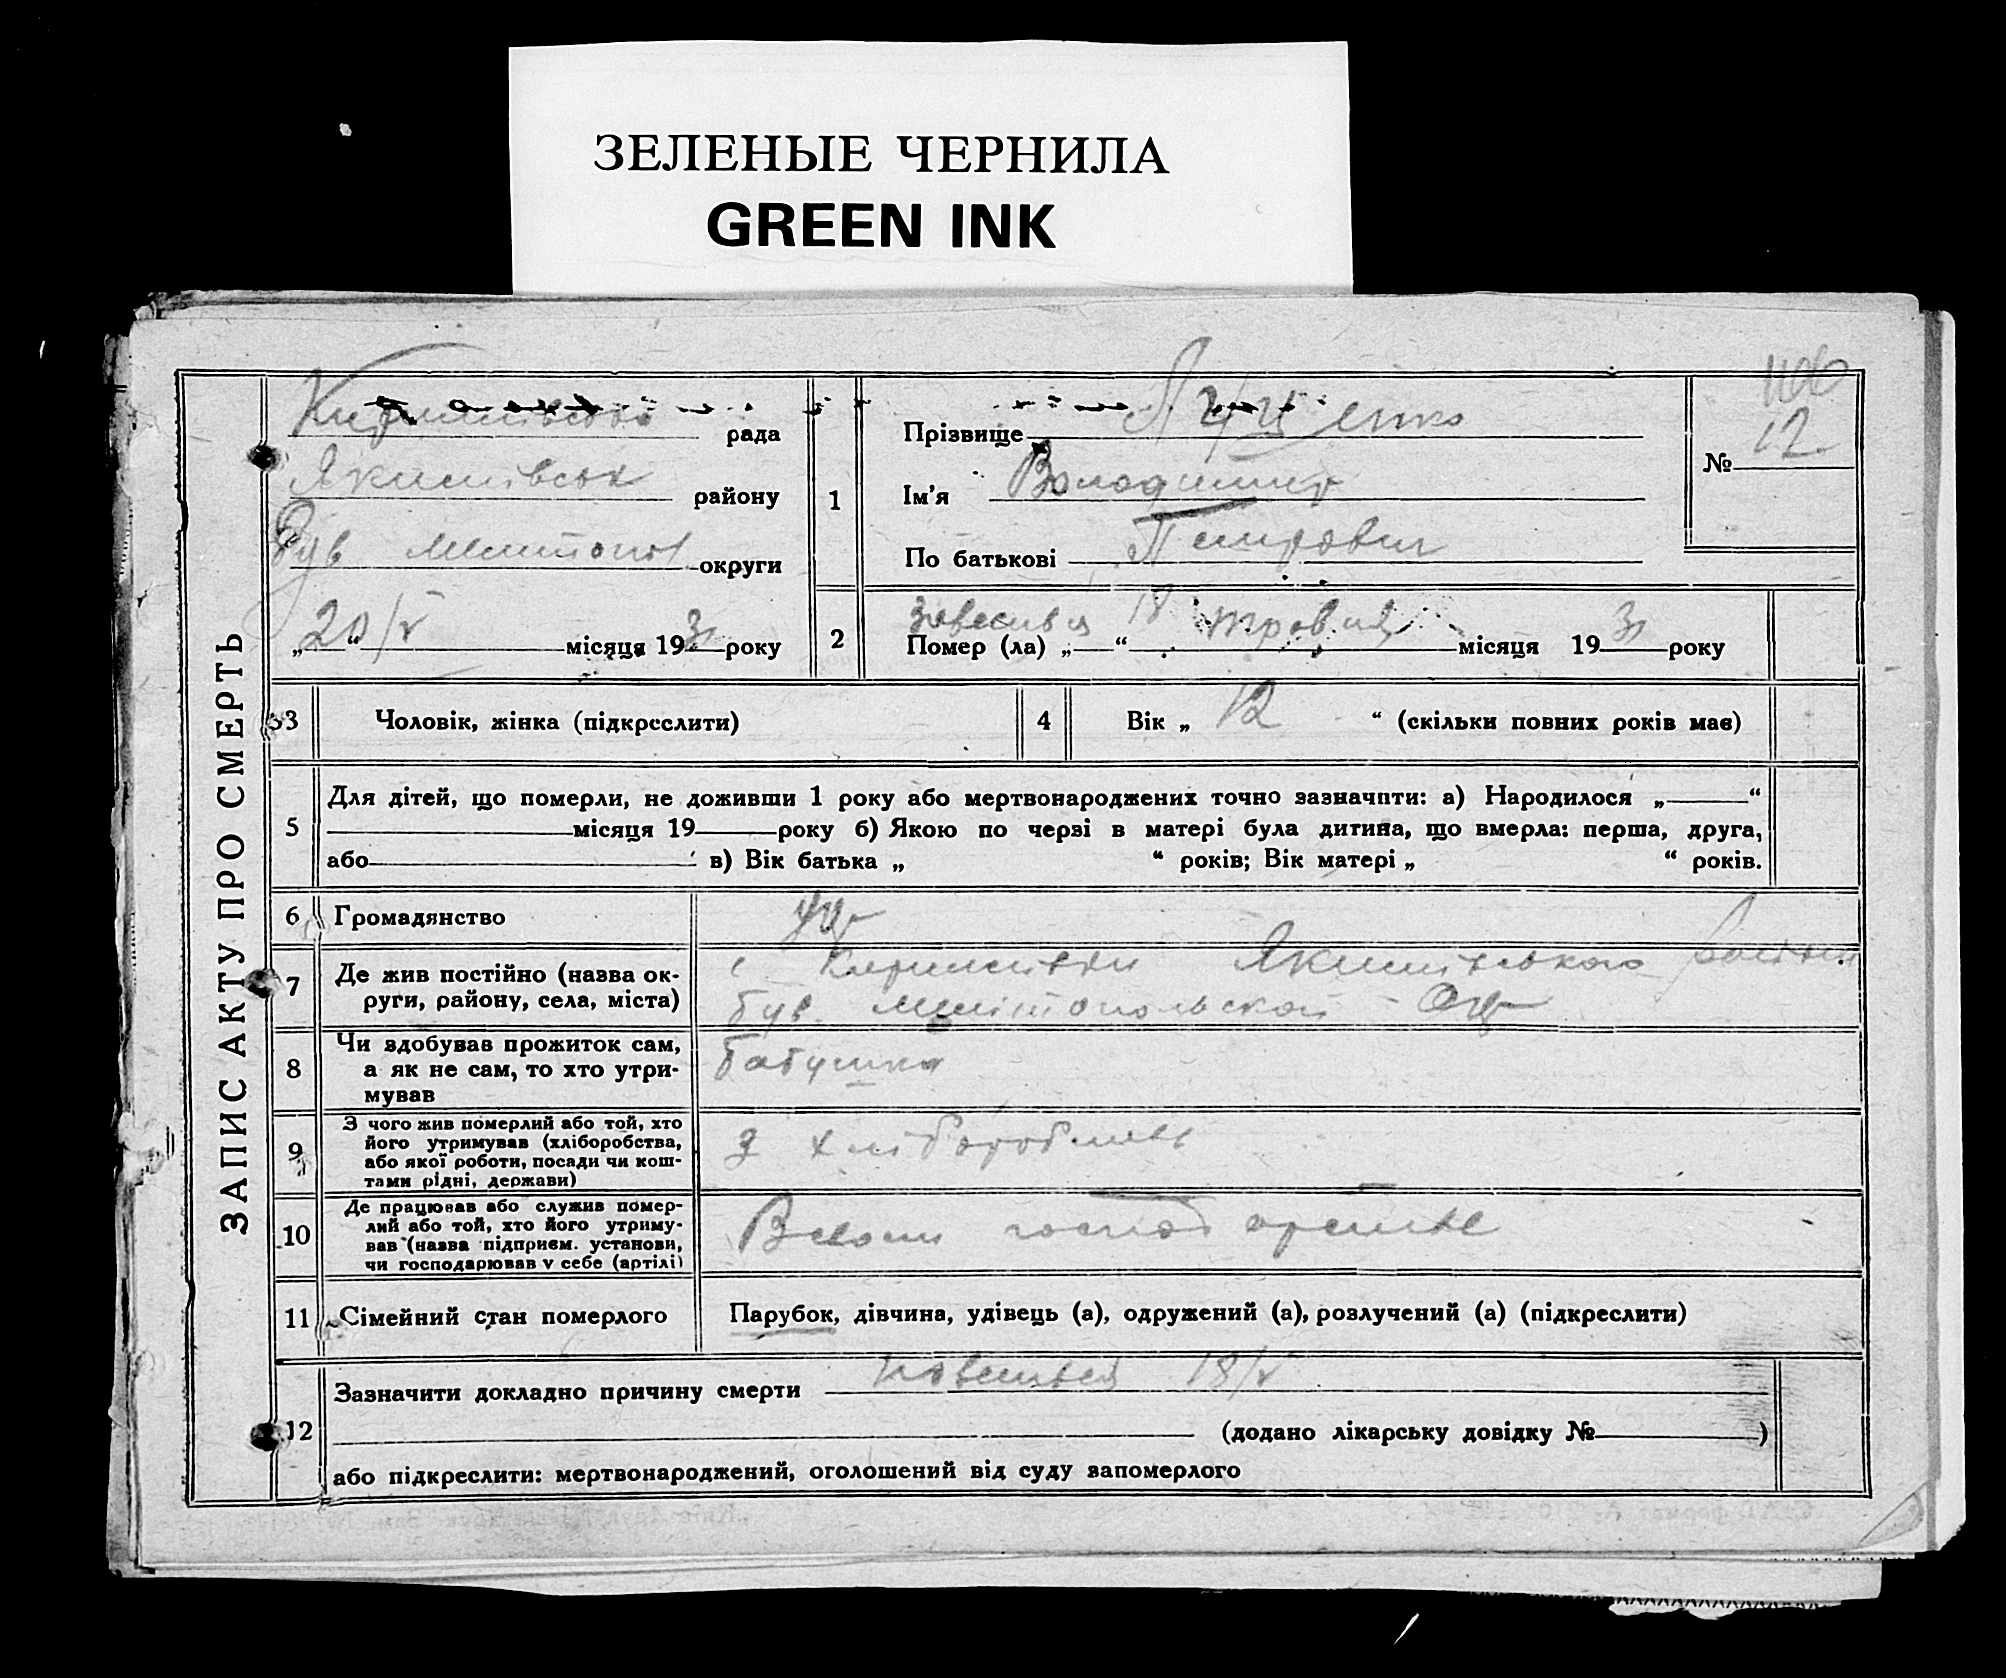 ЗЕЛЕНЫЕ ЧЕРНИЛА
GREEN INK
ЗАПИС АКТУ ПРО СМЕРТЬ
Кирилівська рада
Якимівськ району
Був Мелітопол округи
„20/V“ місяця 1931 року
1
Прізвище Луценко
Ім'я Володимир
По батькові Петрович
1106
№ 12
2
Помер (ла) „18“ травня місяця 1931 року
3 Чоловік, жінка (підкреслити)
4 Вік „ 12 “ (скільки повних років має)
5 Для дітей, що померли, не доживши 1 року або мертвонароджених точно зазначити: а) Народилося „ “
місяця 19 року б) Якою по черзі в матері була дитина, що вмерла: перша, друга,
або в) Вік батька „ “ років; Вік матері „ “ років.
6 Громадянство Укр
7 Де жив постійно (назва ок-
руги, району, села, міста)
с Кирилівки Якимівського
був. Мелітопольскои Окр
8 Чи здобував прожиток сам,
а як не сам, то хто утри-
мував
бабушка
9 З чого жив померлий або той, хто
його утримував (хліборобства,
або якої роботи, посади чи кош-
тами рідні, держави)
з хліборобства
10 Де працював або служив помер-
лий або той, хто його утриму-
вав (назва підприєм. установи,
чи господарював у себе (артілі)
В своем господарстве
11 Сімейний стан померлого Парубок, дівчина, удівець (а), одружений (а), розлучений (а) (підкреслити)
12 Зазначити докладно причину смерти 18/V
(додано лікарську довідку № )
або підкреслити: мертвонароджений, оголошений від суду запомерлого